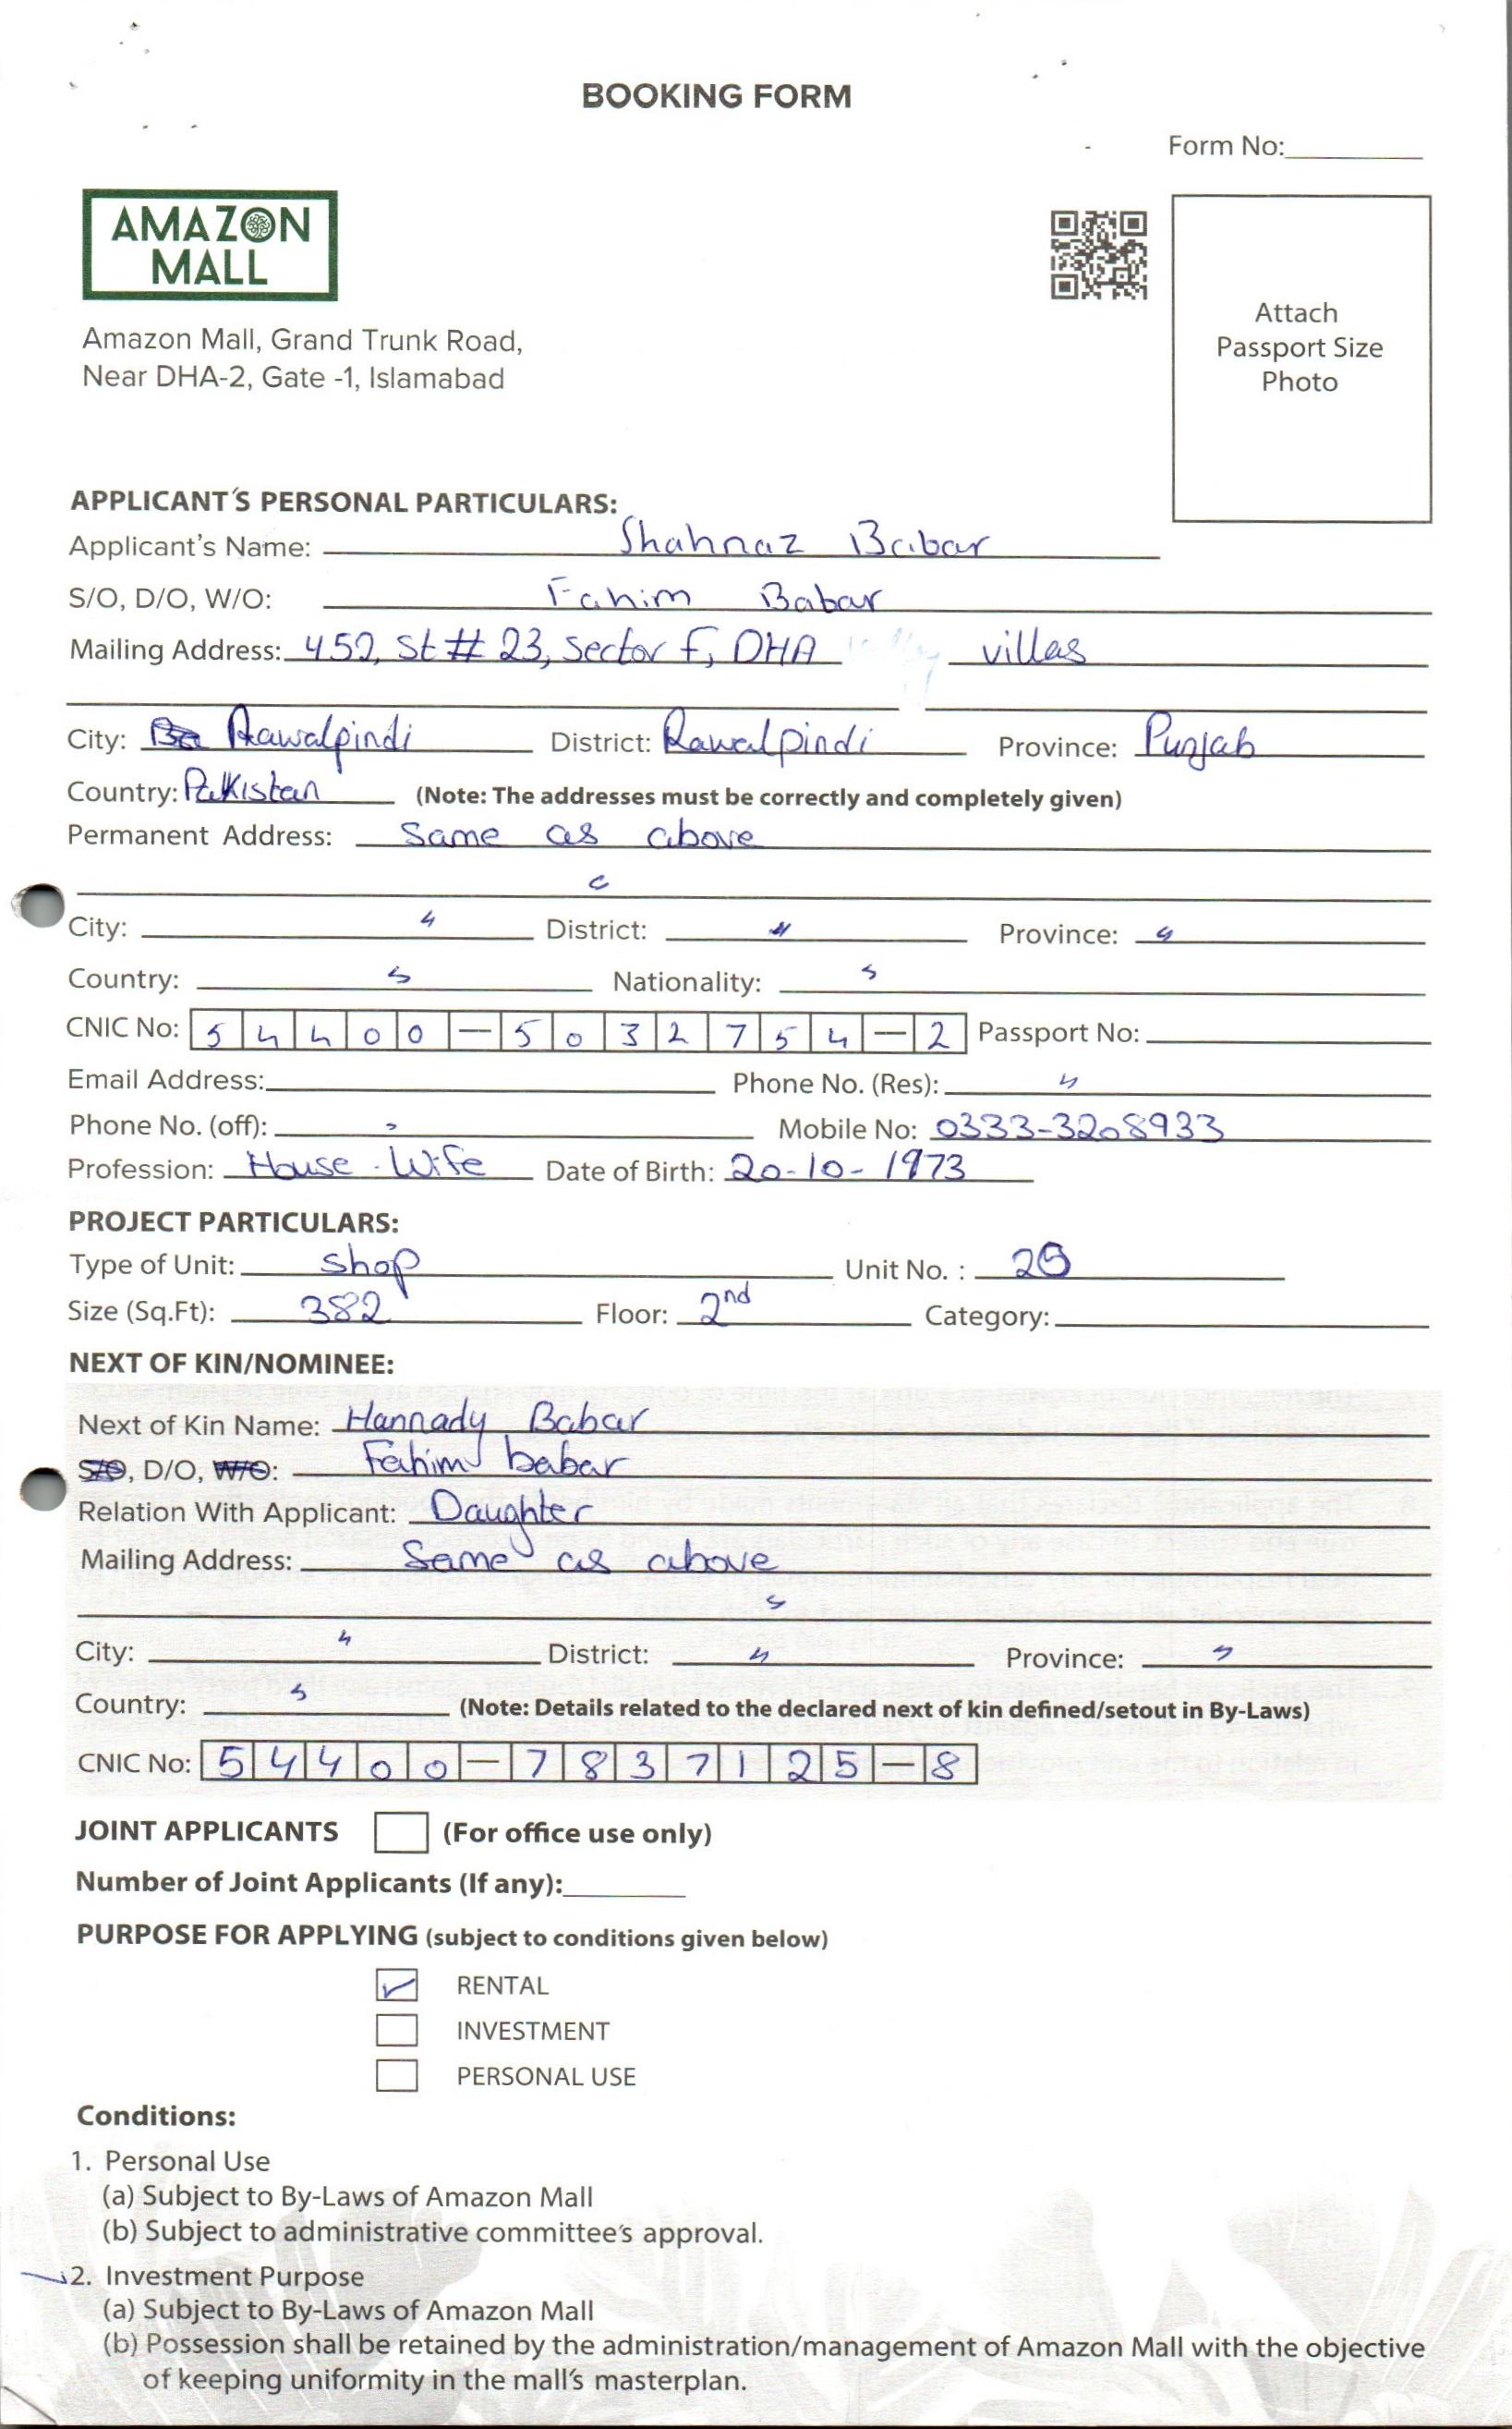 BOOKING FORM
Form No:
AMAZON
MALL
Attach
Passport Size
Photo
Amazon Mall, Grand Trunk Road,
Near DHA-2, Gate -1, Islamabad
APPLICANT'S PERSONAL PARTICULARS:
Applicant's Name: Shahnaz Babar
S/O, D/O, W/O: Fahim Babar
Mailing Address: 452, St # 23, Sector F, DHA villas
City: Rawalpindi District: Rawalpindi Province: Punjab
Country: Pakistan (Note: The addresses must be correctly and completely given)
Permanent Address: Same as above
City: District: Province:
Country: Nationality:
CNIC No: 54400-5032754-2 Passport No:
Email Address: Phone No. (Res):
Phone No. (off): Mobile No: 0333-3208933
Profession: House-Wife Date of Birth: 20-10-1973
PROJECT PARTICULARS:
Type of Unit: Shop Unit No. :
Size (Sq.Ft): 382 Floor: 2nd Category:
NEXT OF KIN/NOMINEE:
Next of Kin Name: Hannady Babar
S/O, D/O, W/O: Fahim babar
Relation With Applicant: Daughter
Mailing Address: Same as above
City: District: Province:
Country: (Note: Details related to the declared next of kin defined/setout in By-Laws)
CNIC No: 54400-7837125-8
JOINT APPLICANTS (For office use only)
Number of Joint Applicants (If any):
PURPOSE FOR APPLYING (subject to conditions given below)
RENTAL
INVESTMENT
PERSONAL USE
Conditions:
1. Personal Use
(a) Subject to By-Laws of Amazon Mall
(b) Subject to administrative committee's approval.
2. Investment Purpose
(a) Subject to By-Laws of Amazon Mall
(b) Possession shall be retained by the administration/management of Amazon Mall with the objective
of keeping uniformity in the mall's masterplan.